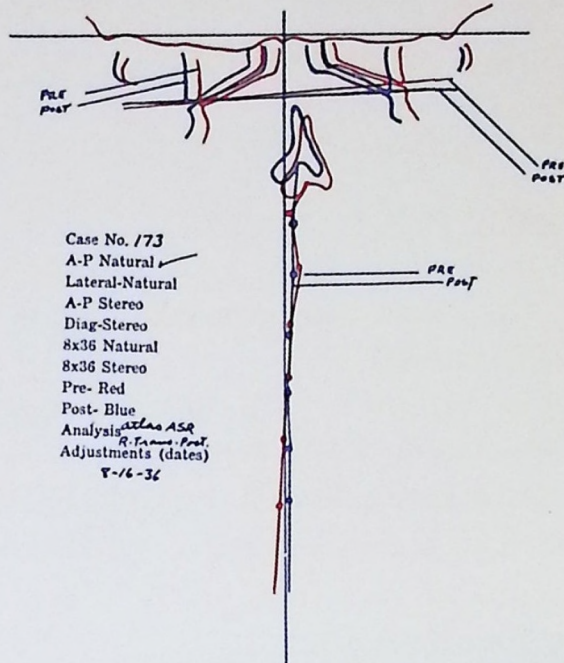 PRE
POST
PRE
POST
PRE
POST
Case No. 173
A-P Natural
Lateral-Natural
A-P Stereo
Diag-Stereo
8x36 Natural
8x36 Stereo
Pre- Red
Post- Blue
Analysis atlas ASR
R. Trans. Post.
Adjustments (dates)
8-16-36